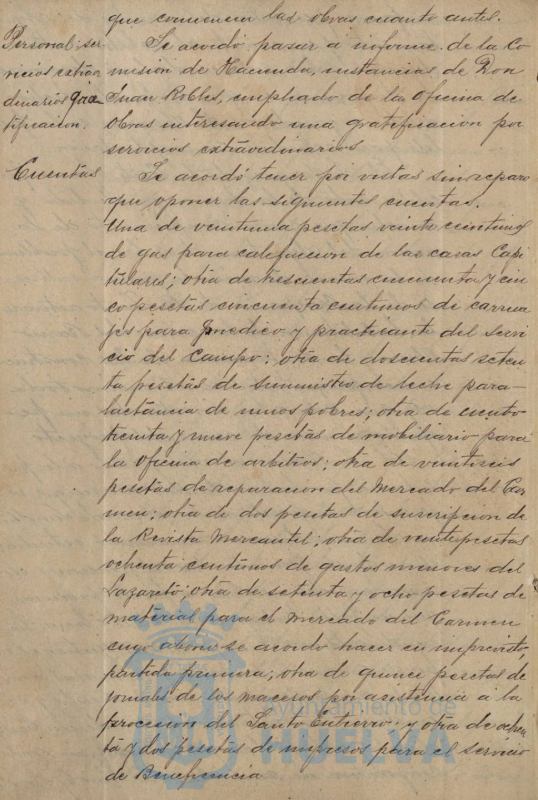 que comiencen las obras cuanto antes.
Personal: ser
vicios extraor
dinarios grat
ificacion.
Se acordó pasar á informe de la Co
mision de Hacienda, instancias de Don
Juan Robles, empleado de la Oficina de
Obras interesando una gratificacion por
servicios extraordinarios
Cuentas
Se acordó tener por vistas sin reparo
que oponer las siguientes cuentas.
Una de veintiuna pesetas veinte centimos
de gas para calefaccion de las casas Capi
tulares; otra de trescientas cincuenta y cin
co pesetas cincuenta centimos de carrua
jes para medico y practicante del servi
cio del campo; otra de doscientas seten
ta pesetas de suministro de leche para
lactancia de niños pobres; otra de ciento
treinta y nueve pesetas de mobiliario para
la oficina de arbitrios; otra de veintiseis
pesetas de reparacion del Mercado del Car
men; otra de dos pesetas de suscripcion de
la Revista Mercantil; otra de veinte pesetas
ochenta centimos de gastos menores del
Lazareto; otra de setenta y ocho pesetas de
material para el mercado del Carmen
cuyo abono se acordo hacer en imprevisto,
partida primera; otra de quince pesetas de
jornales de los maceros por asistencia á la
procesion del Santo Entierro y otra de ochen
ta y dos pesetas de impresos para el servicio
de Beneficencia
Ayuntamiento de
HUELVA